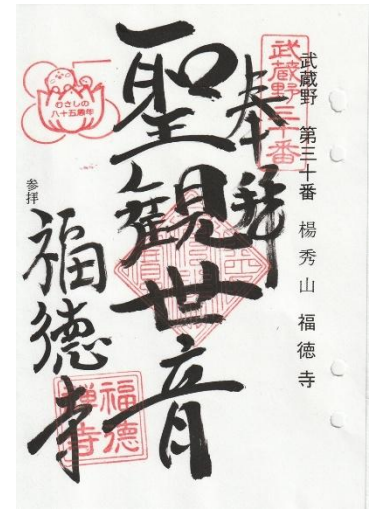 武蔵野 第三十番 楊秀山 福徳寺
武蔵野三十番
奉拝
聖観世音
むさしの
八十五周年
参拝
福徳寺
福徳
禅寺